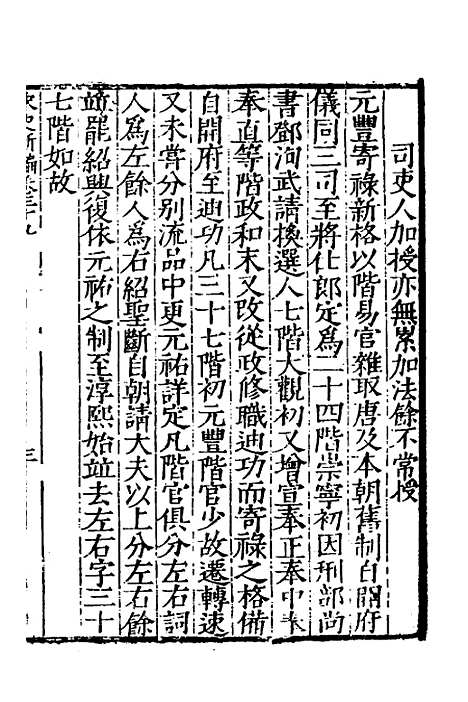 司吏人加授亦無累加法餘不常授
元豐寄祿新格以階易官雜取唐及本朝舊制自開府
儀同三司至將仕郎定爲二十四階崇寧初因刑部尚
書鄧洵武請換選人七階大觀初又增宣奉正奉中奉
奉直等階政和末又改從政修職迪功而寄祿之格備
自開府至迪功凡三十七階初元豐階官少故遷轉速
又未嘗分别流品中更元祐詳定凡階官俱分左右詞
人爲左餘人爲右紹聖斷自朝請大夫以上分左右餘
竝罷紹興復依元祐之制至淳熙始竝去左右字三十
七階如故
宋史新編卷三十九
三